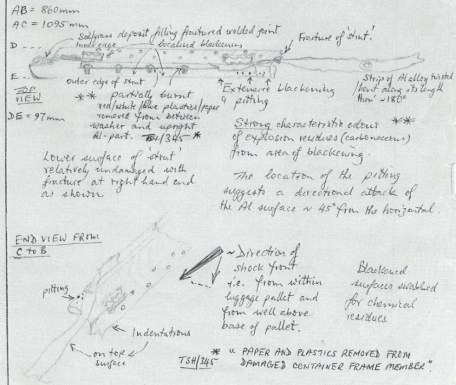 AB = 860mm
AC = 1095mm
Soil/grass deposit filling fractured welded joint
inner edge
localised blackening
Fracture of 'strut'.
D
E
TOP
VIEW
DE = 97mm
outer edge of strut
** partially burnt
red/white/blue plastics/paper
removed from between
washer and upright
Al-part. TSH/345 *
Extensive blackening
& pitting
Strip of Al alloy twisted
/bent along its length
thro' ~180°
Strong characteristic odour **
of explosion residues (carbonaceous)
from area of blackening.
Lower surface of 'strut'
relatively undamaged with
fracture at right hand end
as shown
The location of the pitting
suggests a directional attack of
the Al surface ~ 45° from the horizontal.
END VIEW FROM
C to B
pitting
~ Direction of
shock front
i.e. from within
luggage pallet and
from well above
base of pallet.
Blackened
surfaces swabbed
for chemical
residues
Indentations
on top
surface
TSH/345
* " PAPER AND PLASTICS REMOVED FROM
DAMAGED CONTAINER FRAME MEMBER "